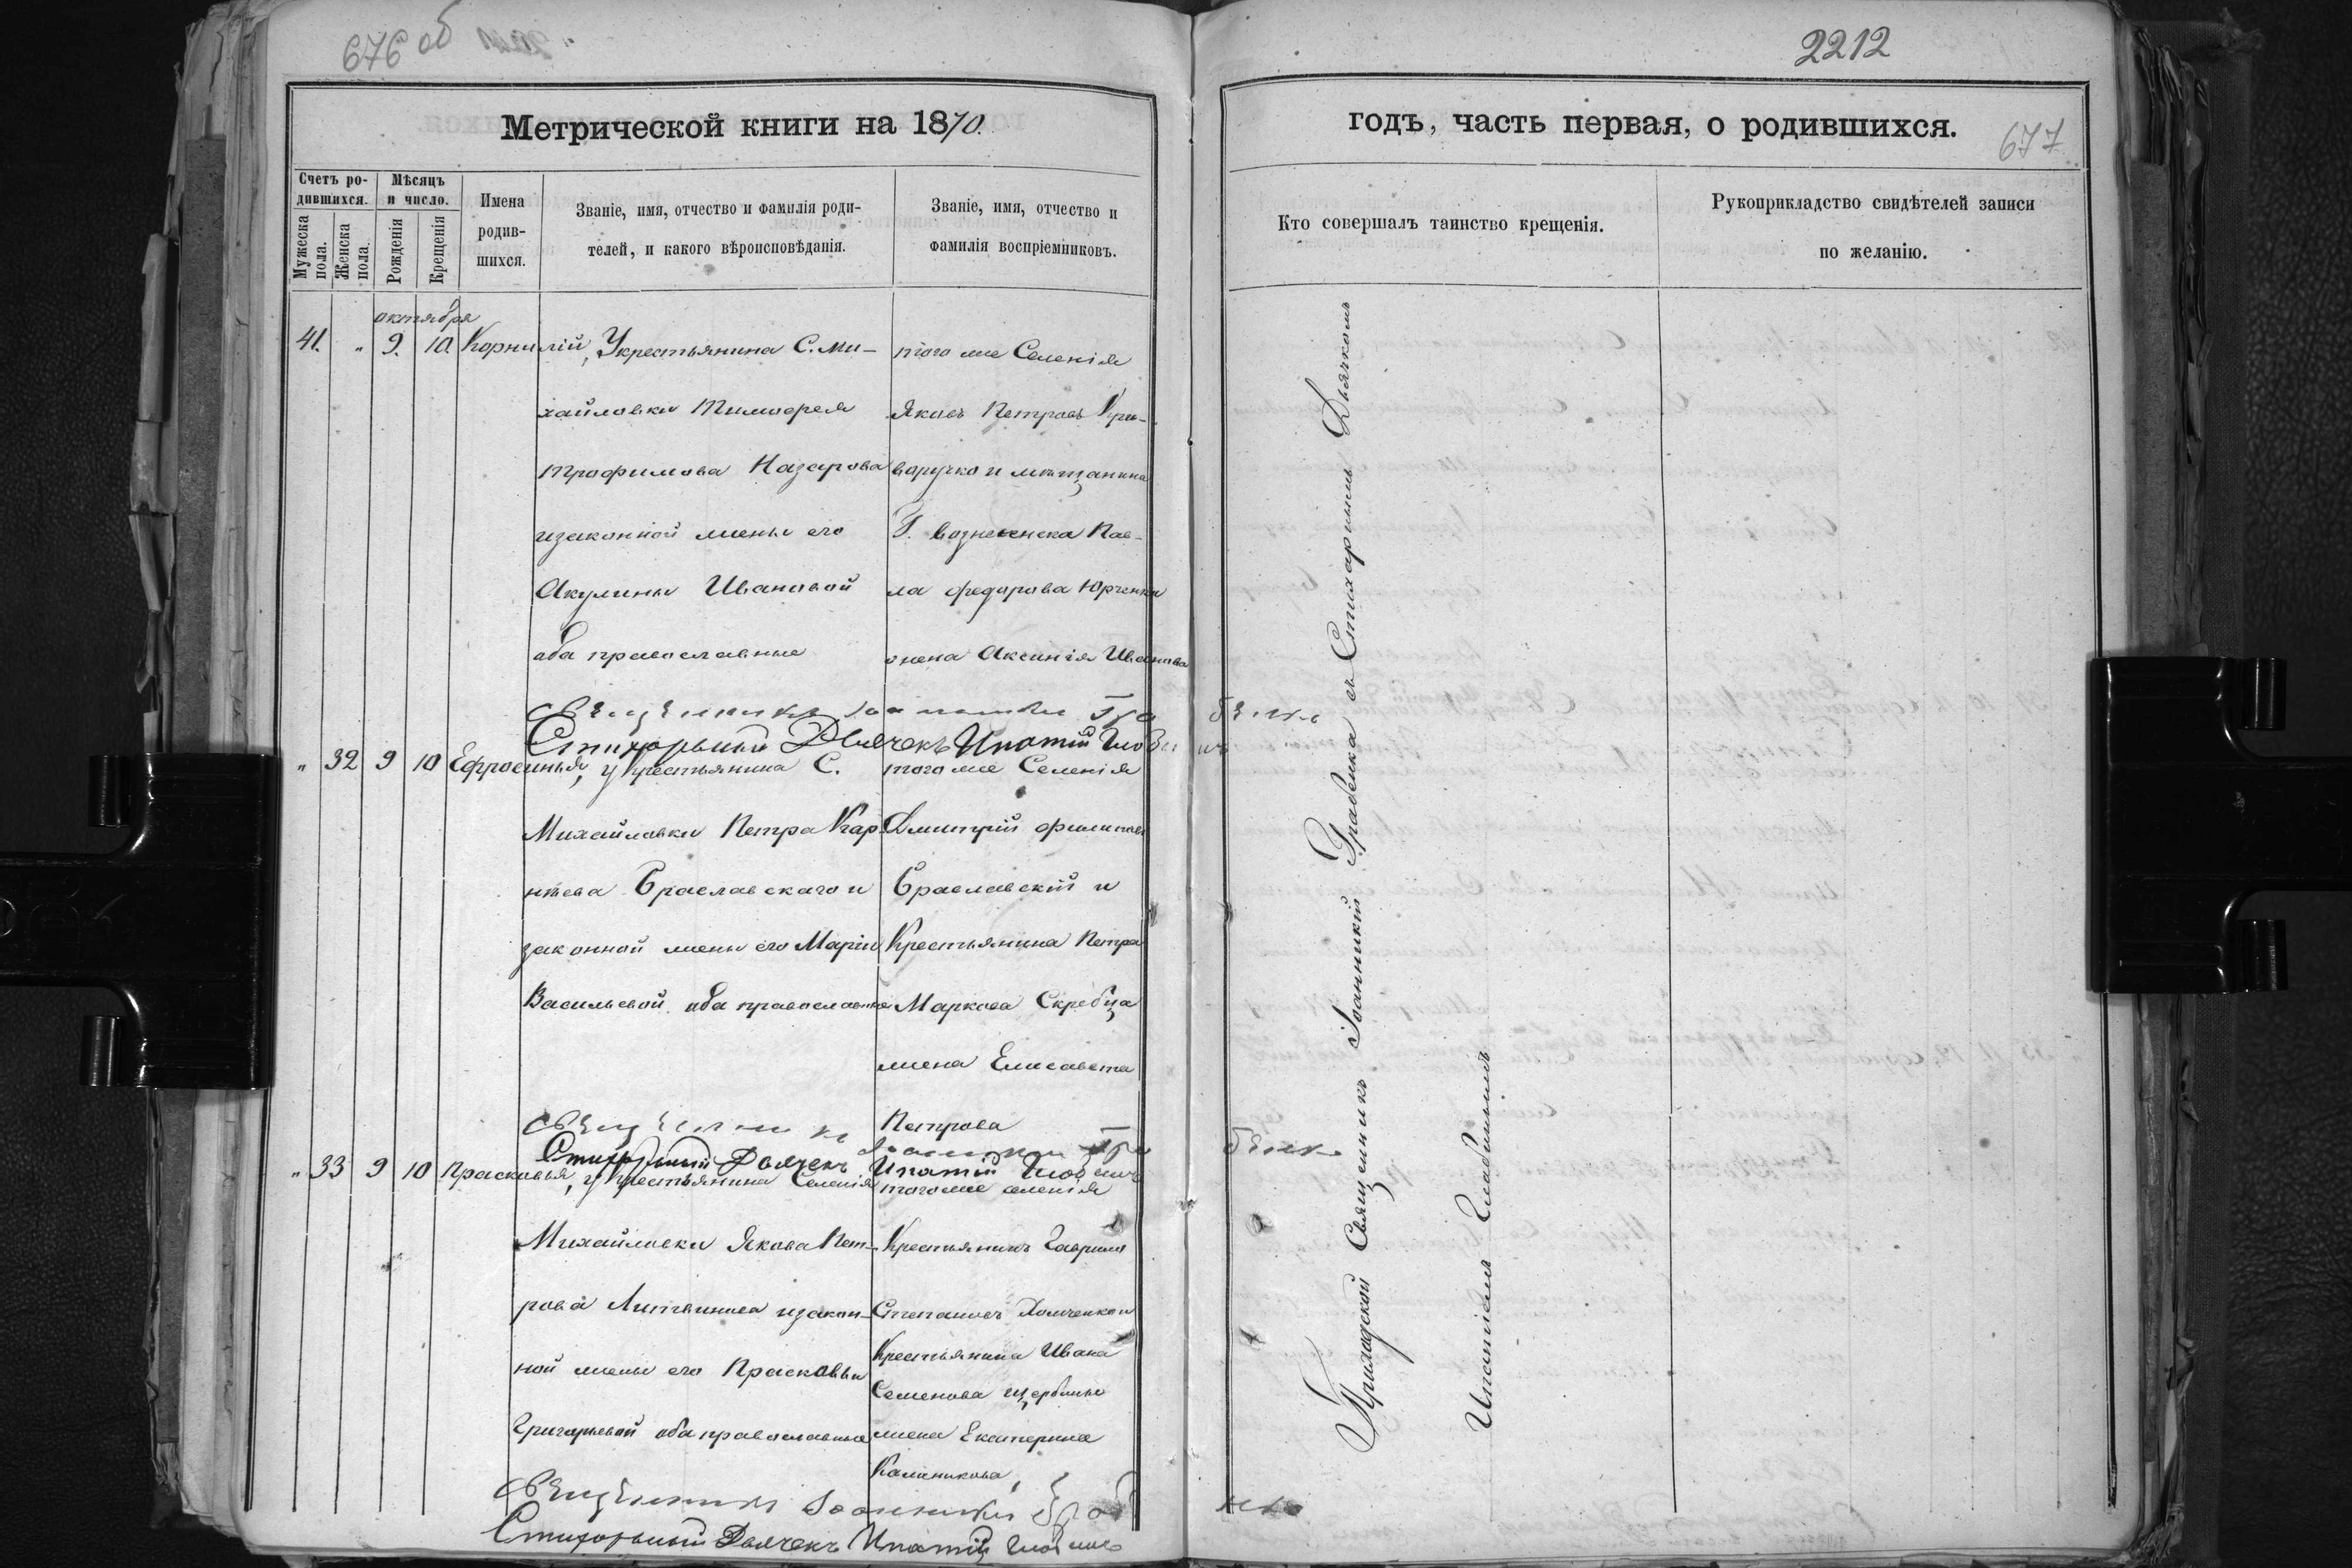 676 об
2212
Метрической книги на 1870.
годъ, часть первая, о родившихся.
677
Счетъ родившихся.
Мужеска пола.
Женска пола.
Мѣсяцъ и число.
Рожденія
Крещенія
Имена родившихся.
Званіе, имя, отчество и фамилія родителей, и какого вѣроисповѣданія.
Званіе, имя, отчество и фамилія воспріемниковъ.
Кто совершалъ таинство крещенія.
Рукоприкладство свидѣтелей записи
по желанію.
октября
41. " 9. 10. Корнилій, У крестьянина С. Ми-
хайловки Тимофея
Трофимова Назарова
и законной жены его
Акулины Ивановой
оба православные
того же Селенія
Яковъ Петровъ Кри-
воручко и мѣщанина
Г. Вознесенска Пав-
ла Федорова Юрченка
жена Аксинія Иванова
Священникъ Іоанникій Грабенко
Стихарный Дьячекъ Ипатій
" 32 9 10 Ефросинья, у крестьянина С.
Михайловки Петра Кар-
нѣева Браславскаго и
законной жены его Маріи
Васильевой оба православные
того же Селенія
Дмитрій Филиповъ
Браславскій и
Крестьянина Петра
Маркова Скребца
жена Елисавета
Петрова
Священникъ Іоанникій Грабенко
Стихарный Дьячекъ Ипатій
" 33 9 10 Прасковья, у крестьянина Селенія
Михайловки Якова Пет-
рова Литвинова и закон-
ной жены его Прасковьи
Григорьевой оба православные
того же селенія
Крестьянинъ Гаврилъ
Степановъ и
Крестьянина Ивана
Семенова Щербины
жена Екатерина
Калиникова,
Священникъ Іоанникій Грабенко
Стихарный Дьячекъ Ипатій
Приходской Священникъ Іоанникій Грабенка съ Стихарнымъ Дьячкомъ
Ипатіемъ